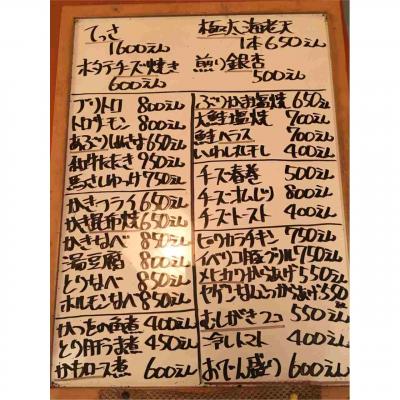 てっさ
1600えん
極太海老天
1本650えん
ホタテチーズ焼き
600えん
煎り銀杏
500えん
ブリトロ 800えん
トロサーモン 800えん
650えん
和牛たたき 950えん
馬さし 750えん
かきフライ 650えん
かき昆布焼 650えん
かきなべ 850えん
湯豆腐 800えん
とりなべ 850えん
ホルモンなべ 850えん
かつおの角煮 400えん
とり肝うま煮 450えん
かもロース煮 600えん
ぶりかま塩焼 650えん
大鮭塩焼 700えん
鮭ハラス 700えん
いわし丸干し 400えん
チーズ春巻 500えん
チーズオムレツ 800えん
チーズトースト 400えん
チキン 750えん
イベリコ豚 750えん
メヒカリからあげ 550えん
ヤゲンなんこつからあげ 550えん
むしがき2コ 550えん
冷しトマト 400えん
おでん盛り 600えん